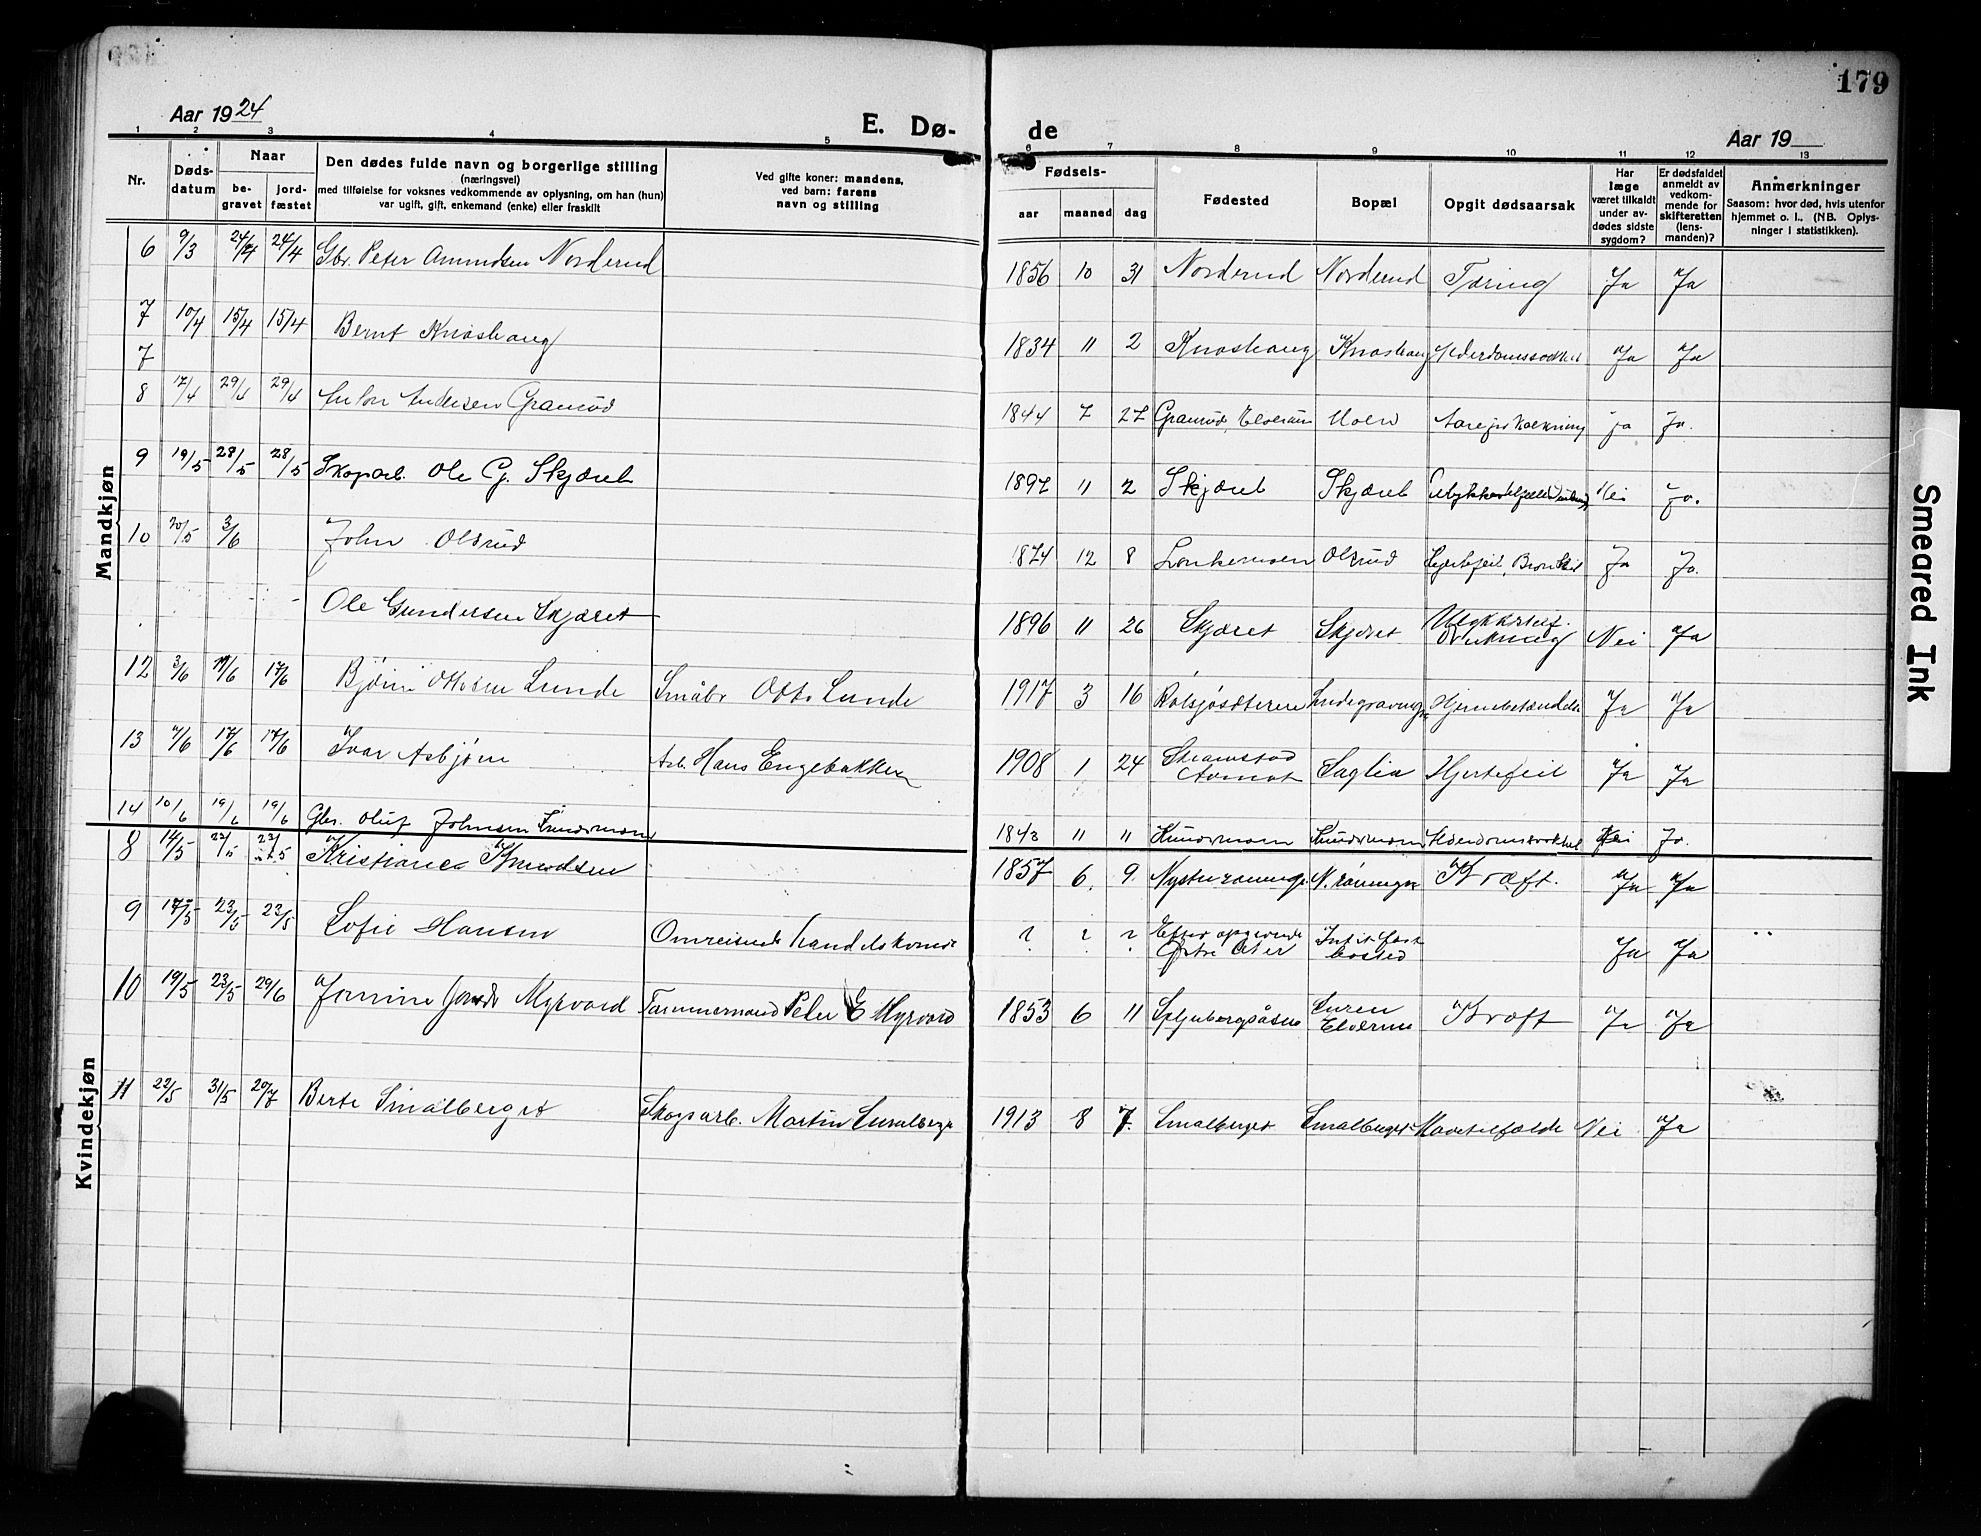 179
Aar 1924
E. Dø-
de
Aar 19
1 2 3 4 5 6 7 8 9 10 11 12 13
Nr.
Døds-
datum
Naar
be-
gravet
jord-
fæstet
Den dødes fulde navn og borgerlige stilling
(næringsvei)
med tilføielse for voksnes vedkommende av oplysning, om han (hun)
var ugift, gift, enkemand (enke) eller fraskilt
Ved gifte koner: mandens,
ved barn: farens
navn og stilling
Fødsels-
aar maaned dag
Fødested
Bopæl
Opgit dødsaarsak
Har
læge
været tilkaldt
under av-
dødes sidste
sygdom?
Er dødsfaldet
anmeldt av
vedkom-
mende for
skifteretten
(lens-
manden)?
Anmerkninger
Saasom: hvor død, hvis utenfor
hjemmet o. l.. (NB. Oplys-
ninger i statistikken).
Mandkjøn
6 9/3 24/4 24/4 Gbr. Peter Amundsen Norderud 1856 10 31 Norderud Norderud Tæring Ja Ja
7 10/4 15/4 15/4 Bernt Knashaug 1834 11 2 Knashaug Knashaug Ja Ja
7
8 17/4 29/4 29/4 Anton Andersen Gramrød 1844 7 27 Gramrød, Elverum Moen Aareforkalkning ja Ja.
9 19/5 28/5 28/5 Skogarb. Ole G. Skjæret 1897 11 2 Skjæret Skjæret Nei Ja.
10 20/5 3/6 John Olsrud 1874 12 8 Olsrud Hjertefeil, Ja Ja.
Ole Gundersen Skjæret 1896 11 26 Skjæret Skjæret Ulykkestilf. Drukning Nei Ja
12 3/6 17/6 17/6 Bjørn Ottesen Lunde Småbr Otto Lunde 1917 3 16 Hjernebetændelse Ja Ja
13 7/6 17/6 17/6 Ivar Asbjørn Arb. Hans Engebakken 1908 1 24 Aamot Saglia Hjertefeil Ja Ja
14 10/6 19/6 19/6 Gbr. Oluf Johnsen 1843 11 11 Nei Ja.
Kvindekjøn
8 14/5 23/5 23/5 Kristiane Knudsen 1857 6. 9. Kræft. Ja Ja
9 17/5 23/5 23/5 Sofie Hansen Omreisende ? ? ? Efter opgivende Østre Intet fast bosted Ja Ja
10 19/5 23/5 29/6 Myrvold Tømmermand Peter E Myrvold 1853 6 11 Elverum Kræft Ja Ja
11 22/5 31/5 20/7 Berte Smalberget Skogsarb. Martin Smalberget 1913 8 7. Smalberget Smalberget Nei Ja
Smeared Ink